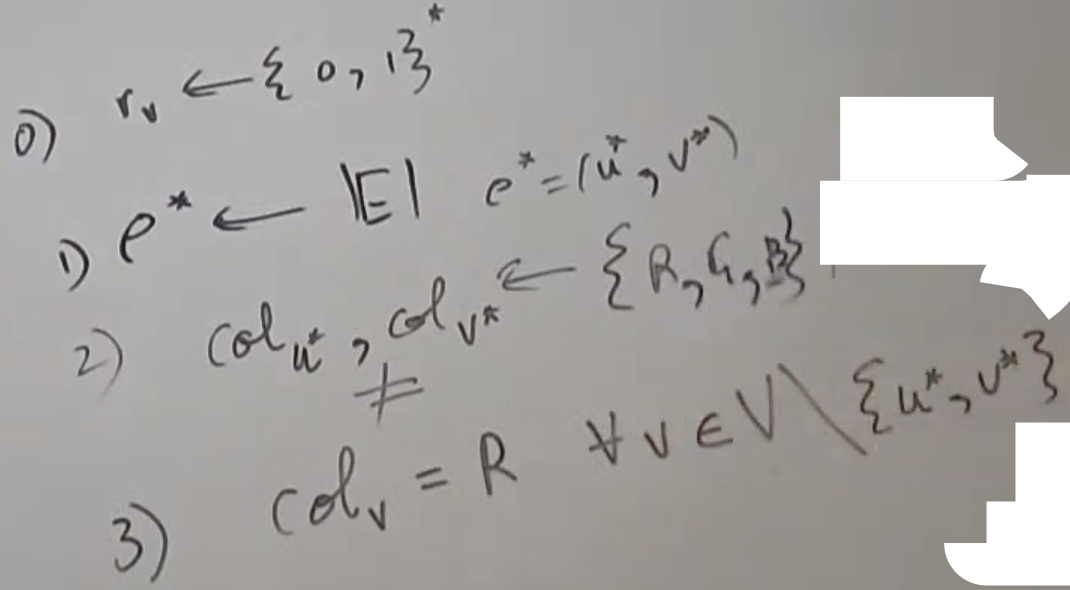 0) r_v ← {0, 1}^*
1) e^* ← |E| e^* = (u^*, v^*)
2) col_{u^*}, col_{v^*} ← {R, G, B}
≠
3) col_v = R ∀ v ∈ V \ {u^*, v^*}